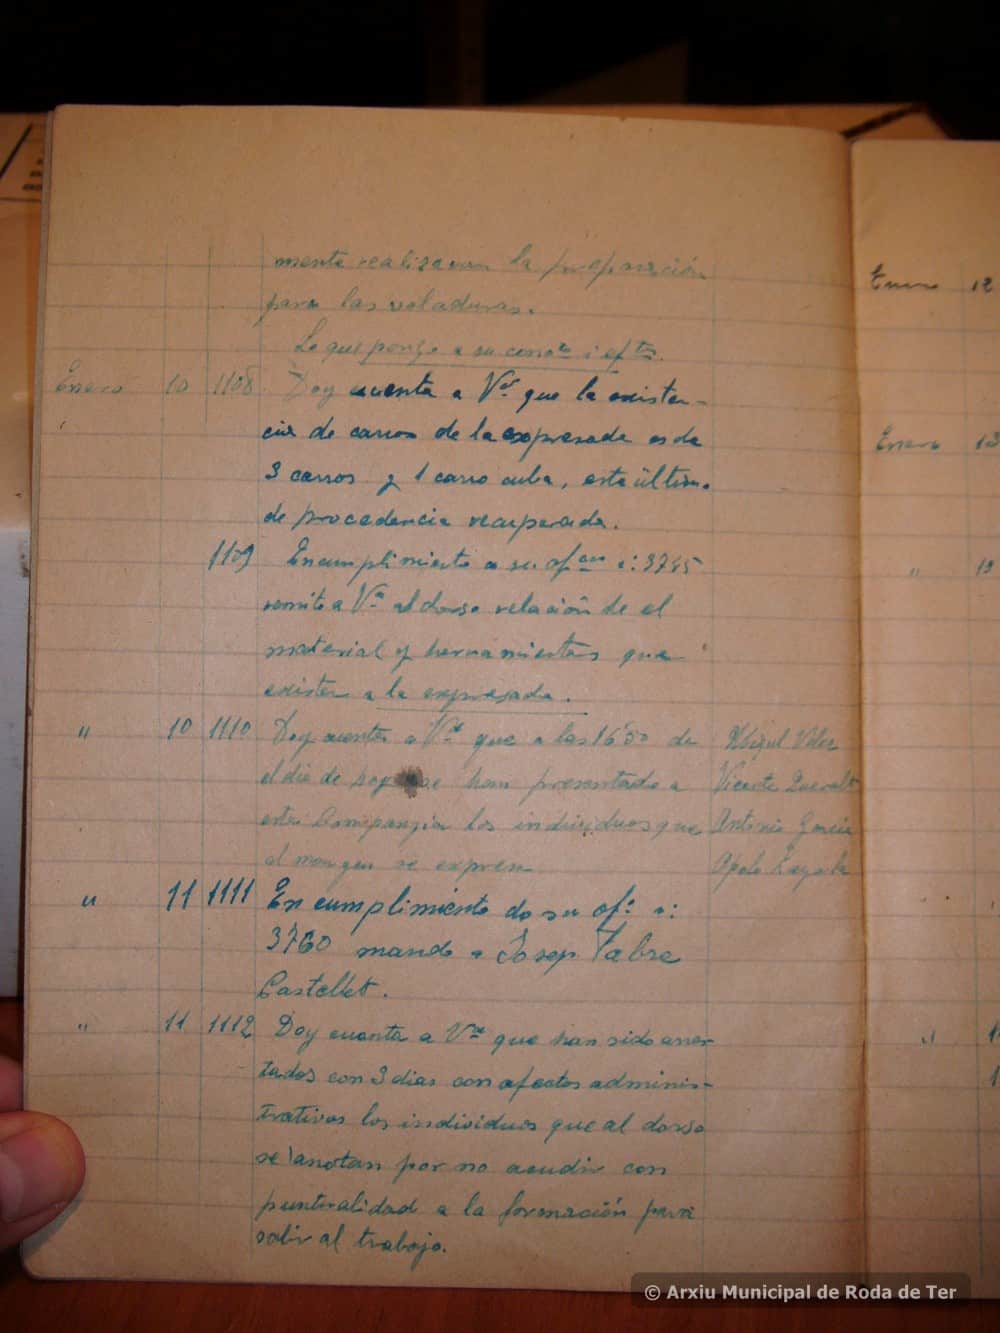 mente realizaran la preparación
para las voladuras.
Lo que pongo a su conoto i eftos.
Enero 10 1108 Doy cuenta a Vd que la existen-
cia de carros de la expresada es de
3 carros y 1 carro cuba, este último
de procedencia recuperada.
1109 En cumplimiento a su of n: 3745
remito a Vd al dorso relación de el
material y herramientas que
existen a la expresada.
" 10 1110 Doy cuenta a Vd que a las 16'30 de
el dia de hoy se han presentado a
esta Compañia los individuos que
al margen se expresan
Vicente Queralt
Antonio Garcia
" 11 1111 En cumplimiento de su of: n:
3760 mando a Josep Fabre
Castellet.
" 11 1112 Doy cuenta a Vd que han sido arres-
tados con 3 dias con efectos adminis-
trativos los individuos que al dorso
se anotan por no acudir con
puntualidad a la formación para
salir al trabajo.
Enero 12
Enero 13
" 13
"
© Arxiu Municipal de Roda de Ter